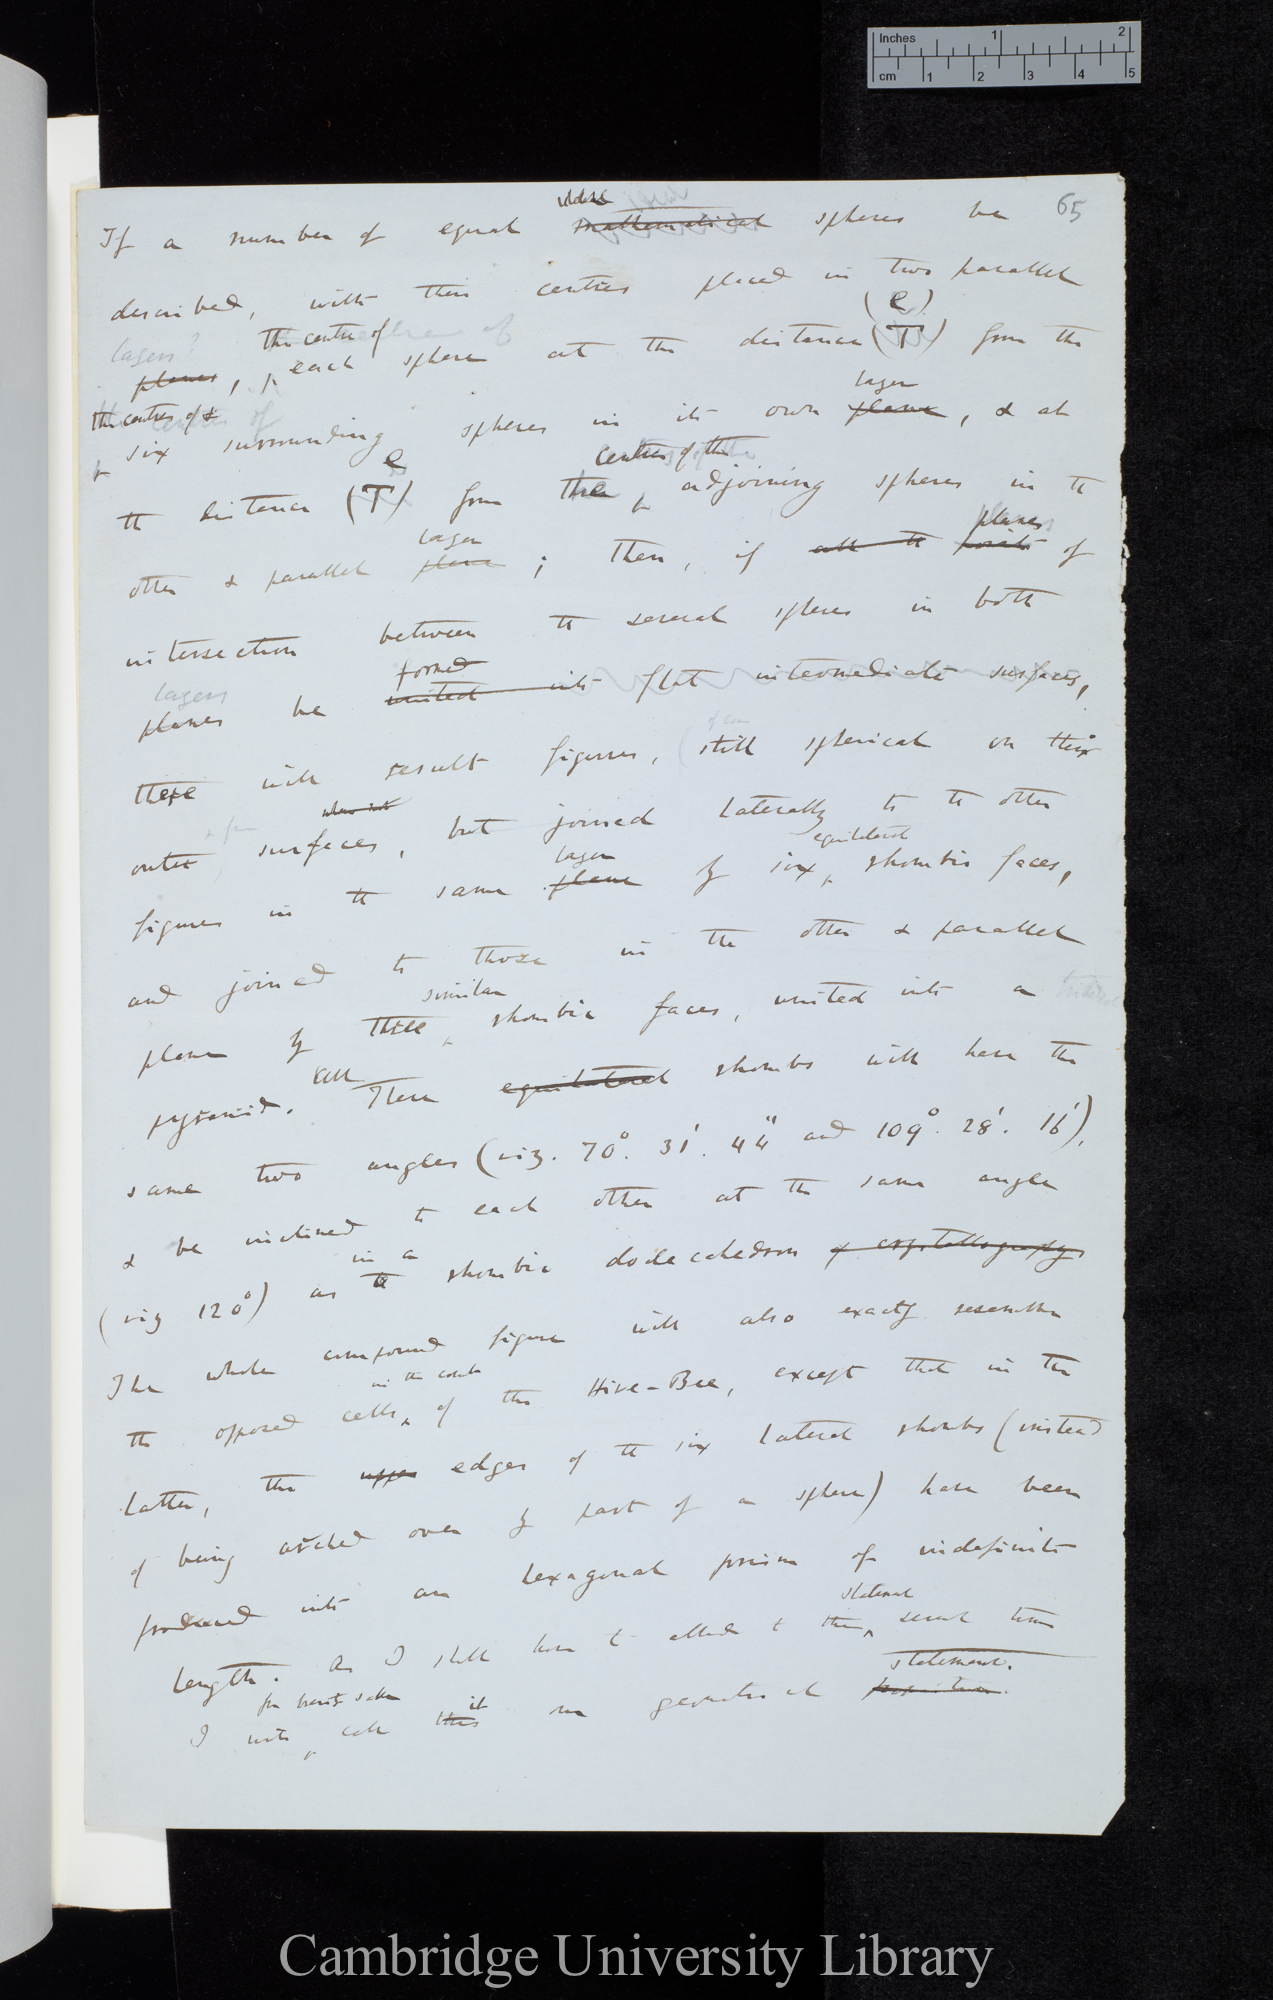 Inches 1 2
cm 1 2 3 4 5
65
If a number of equal mathematical spheres be
described, with their centres placed in two parallel
(e)
layers? the centre of
planes, each sphere at the distance (T) from the
layer
the centres of &
six surrounding spheres in its own plane, & at
e centres of the
the distance (T) from the adjoining spheres in the
layer planes
other & parallel plane; then, if all the points of
intersection between the several spheres in both
layers formed
planes be united into flat intermediate surfaces,
there will result figures, still spherical on their
outer surfaces, but joined laterally to the other
layer equilateral
figures in the same plane by six rhombic faces,
and joined to those in the other & parallel
similar
plane by three rhombic faces, united into a
all
pyramid. These equilateral rhombs will have the
same two angles (viz. 70°. 31'. 44" and 109°. 28'. 16'),
& be inclined to each other at the same angle
in a
(viz 120°) as the rhombic dodecahedron of crystallography.
The whole compound figure will also exactly resemble
in the comb
the opposed cells of the Hive-Bee, except that in the
latter, the upper edges of the six lateral rhombs (instead
of being arched over by part of a sphere) have been
produced into an hexagonal prism of indefinite
statement
length. As I shall have to allude to this several times
for brevity sake it statement.
I will call this my geometrical
Cambridge University Library